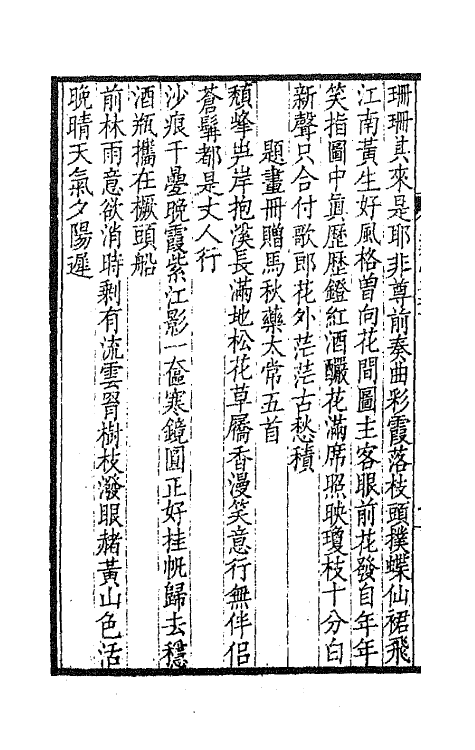 珊珊其來是耶非尊前奏曲彩霞落枝頭撲蝶仙裙飛
江南黃生好風格曾向花間圖主客眼前花發自年年
笑指圖中眞歷歷鐙紅酒釅花滿席照映瓊枝十分白
新聲只合付歌郎花外茫茫古愁積
題畫冊贈馬秋藥太常五首
頹峰屴岸抱溪長滿地松花草屩香漫笑意行無伴侶
蒼髯都是丈人行
沙痕千疊晚霞紫江影一奩寒鏡圓正好挂帆歸去穩
酒瓶攜在橛頭船
前林雨意欲消時剩有流雲罥樹枝潑眼赭黃山色活
晚晴天氣夕陽遲